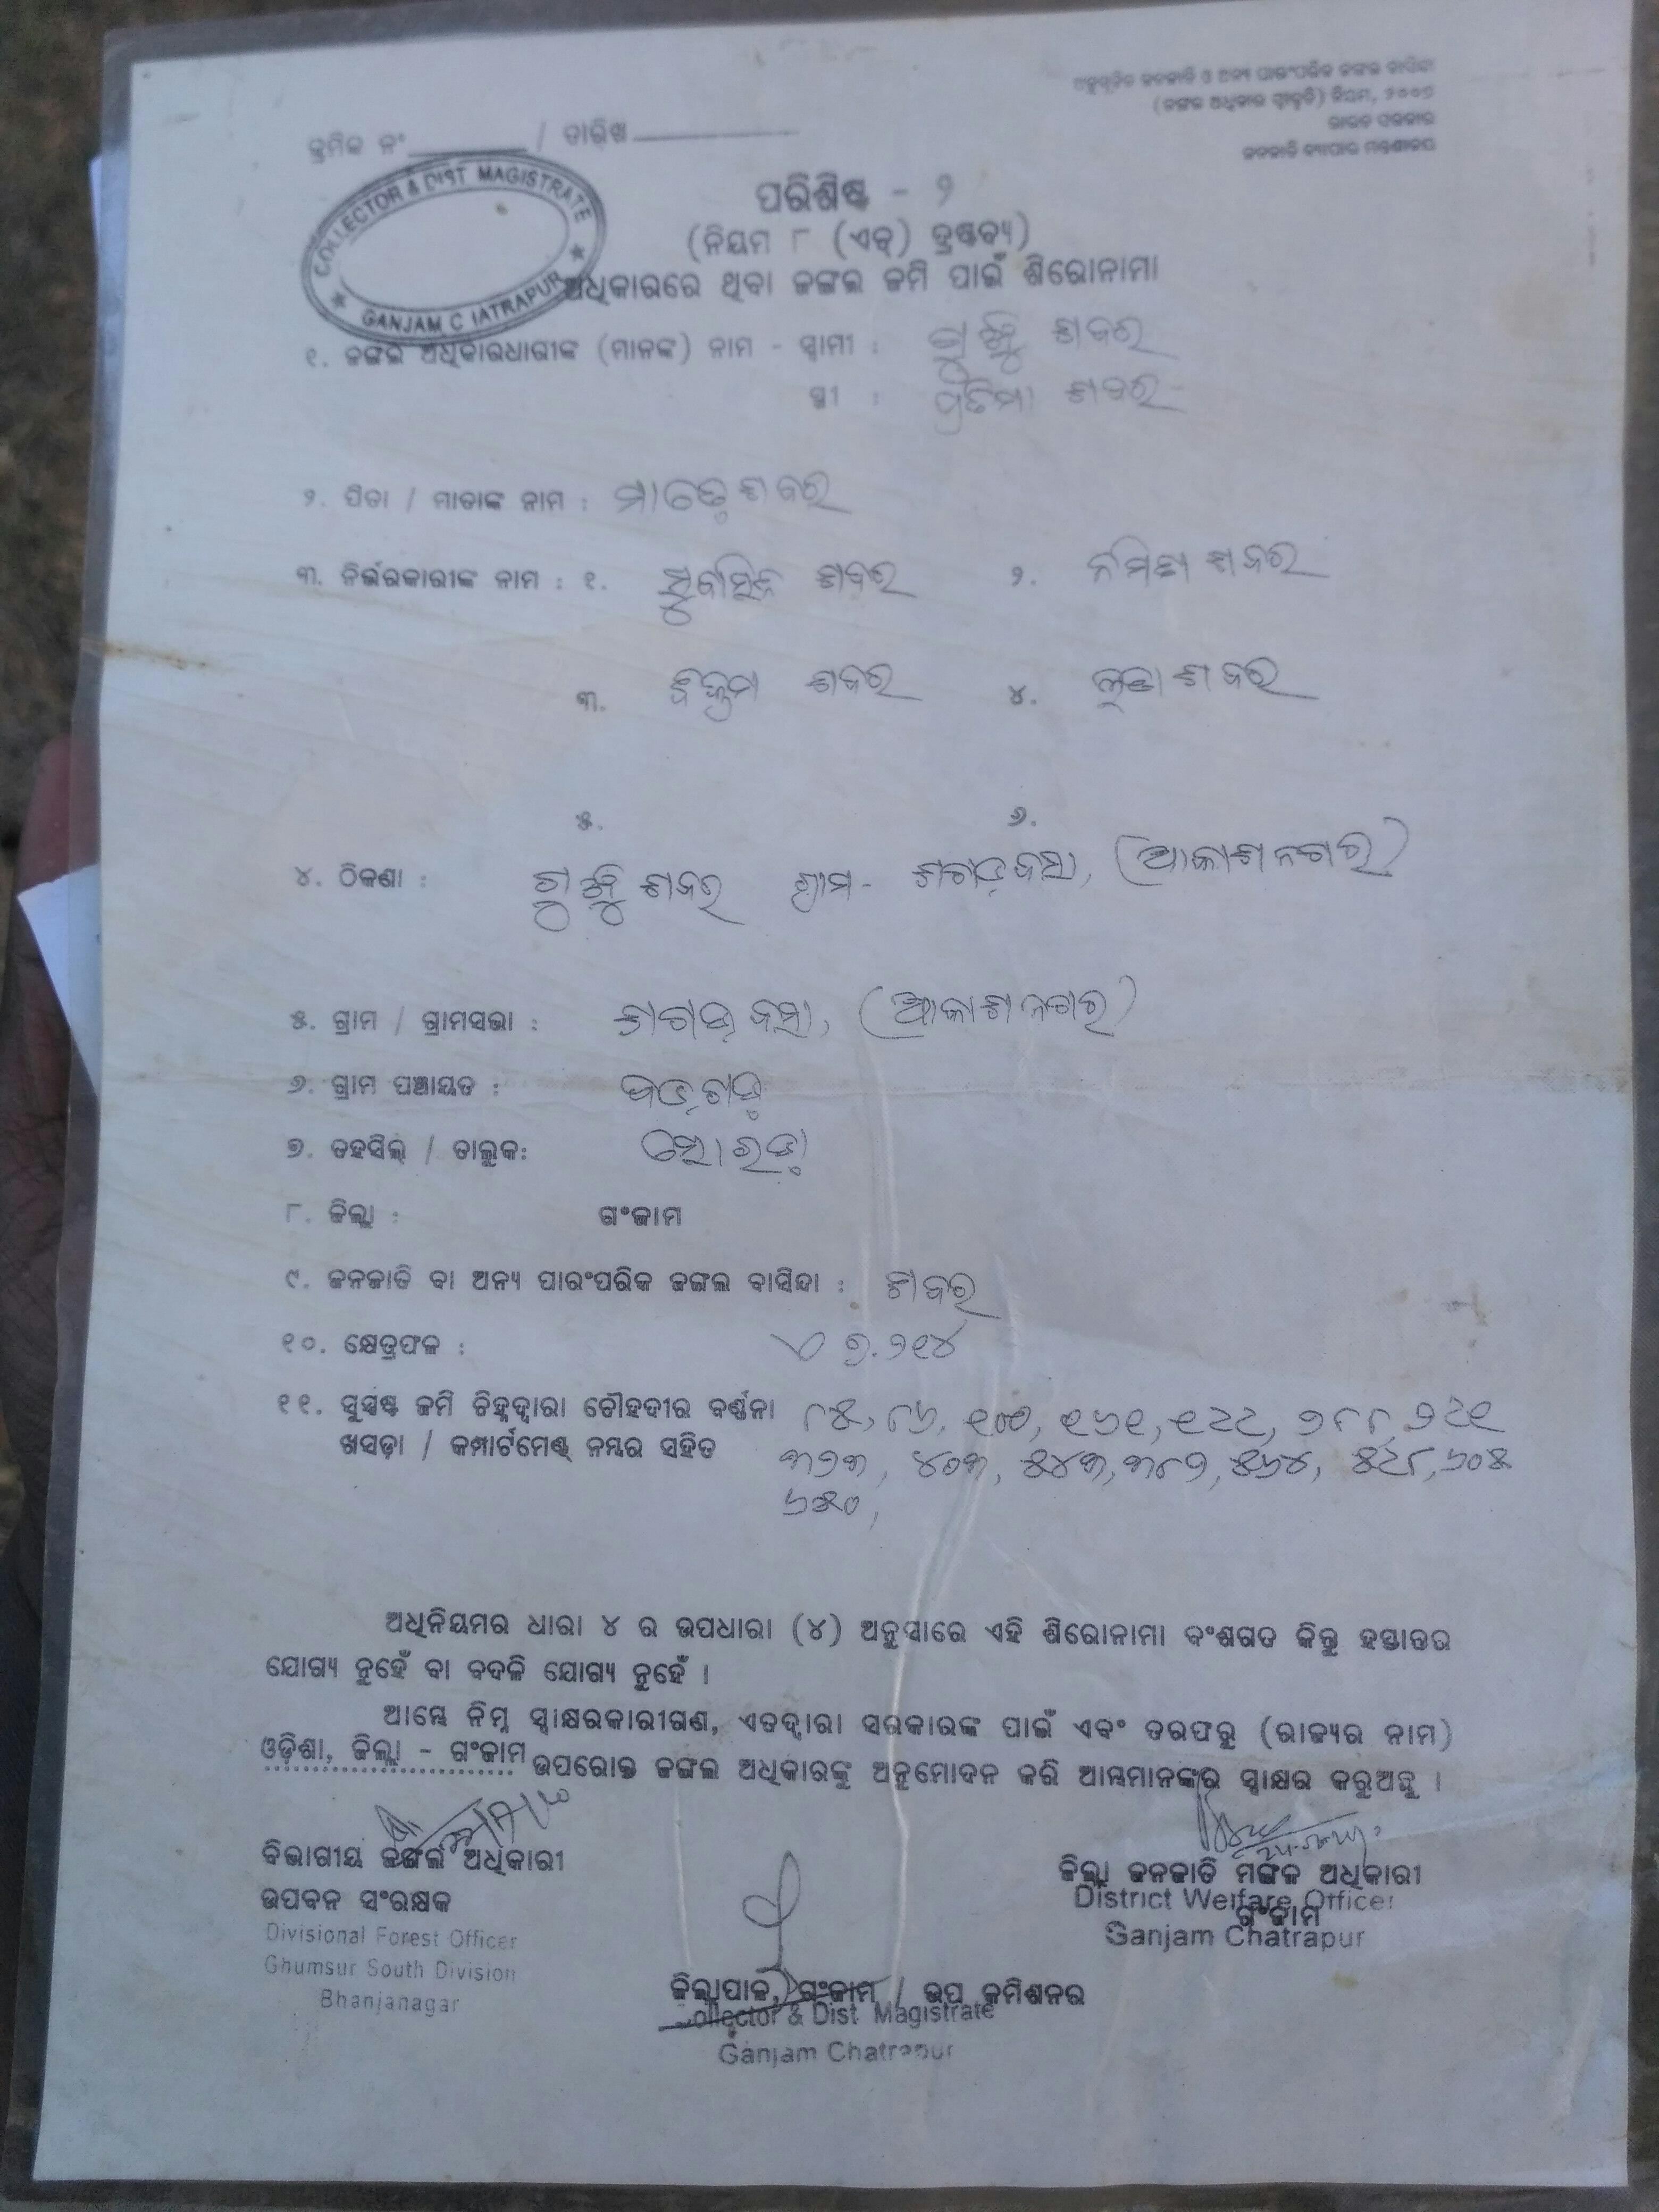 ଅନୁସୂଚିତ ଜନଜାତି ଓ ଅନ୍ୟ ପାରଂପରିକ ଜଙ୍ଗଲ ବାସିନ୍ଦା
(ଜଙ୍ଗଲ ଅଧିକାର ସ୍ୱୀକୃତି) ନିୟମ, ୨୦୦୭
ଭାରତ ସରକାର
ଜନଜାତି ବ୍ୟାପାର ମନ୍ତ୍ରଣାଳୟ
କ୍ରମିକ ନଂ / ତାରିଖ
COLLECTOR & DIST MAGISTRATE
GANJAM C IATRAPUR
ପରିଶିଷ୍ଟ - ୨
(ନିୟମ ୮ (ଏଚ୍) ଦ୍ରଷ୍ଟବ୍ୟ)
ଅଧିକାରରେ ଥିବା ଜଙ୍ଗଲ ଜମି ପାଇଁ ଶିରୋନାମା
୧. ଜଙ୍ଗଲ ଅଧିକାରଧାରୀଙ୍କ (ମାନଙ୍କ) ନାମ - ସ୍ୱାମୀ : ଶବର
ସ୍ତ୍ରୀ : ପ୍ରତିମା ଶବର
୨. ପିତା / ମାତାଙ୍କ ନାମ : ଶବର
୩. ନିର୍ଭରକାରୀଙ୍କ ନାମ : ୧. ଶବର ୨. ନମିତା ଶବର
୩. ଶବର ୪. ଶବର
୫. ୬.
୪. ଠିକଣା : ଶବର ଗ୍ରାମ - (ଆକାଶନଗର)
୫. ଗ୍ରାମ / ଗ୍ରାମସଭା : (ଆକାଶନଗର)
୬. ଗ୍ରାମ ପଞ୍ଚାୟତ : ବଡ଼ଗଡ଼
୭. ତହସିଲ୍ / ତାଲୁକ: ସୋରଡ଼ା
୮. ଜିଲ୍ଲା : ଗଂଜାମ
୯. ଜନଜାତି ବା ଅନ୍ୟ ପାରଂପରିକ ଜଙ୍ଗଲ ବାସିନ୍ଦା : ଶବର
୧୦. କ୍ଷେତ୍ରଫଳ : ୭.୨୧୪
୧୧. ସୁସ୍ପଷ୍ଟ ଜମି ଚିହ୍ନଦ୍ୱାରା ଚୌହଦୀର ବର୍ଣ୍ଣନା ୮୫, ୮୬, ୧୬୧, ୧୯୯, ୨୮୮, ୨୯୧
ଖସଡ଼ା / କମ୍ପାର୍ଟମେଣ୍ଟ ନମ୍ବର ସହିତ ୩୭୩, ୪୦୩, ୫୪୩, ୩୮୨, ୫୬୪, ୫୯୮, ୬୦୫
୬୫୦,
ଅଧିନିୟମର ଧାରା ୪ ର ଉପଧାରା (୪) ଅନୁସାରେ ଏହି ଶିରୋନାମା ବଂଶଗତ କିନ୍ତୁ ହସ୍ତାନ୍ତର
ଯୋଗ୍ୟ ନୁହେଁ ବା ବଦଳି ଯୋଗ୍ୟ ନୁହେଁ ।
ଆମ୍ଭେ ନିମ୍ନ ସ୍ୱାକ୍ଷରକାରୀଗଣ, ଏତଦ୍ୱାରା ସରକାରଙ୍କ ପାଇଁ ଏବଂ ତରଫରୁ (ରାଜ୍ୟର ନାମ)
ଓଡ଼ିଶା, ଜିଲ୍ଲା - ଗଂଜାମ ଉପରୋକ୍ତ ଜଙ୍ଗଲ ଅଧିକାରଙ୍କୁ ଅନୁମୋଦନ କରି ଆମ୍ଭମାନଙ୍କର ସ୍ୱାକ୍ଷର କରୁଅଛୁ ।
ବିଭାଗୀୟ ଜଙ୍ଗଲ ଅଧିକାରୀ
ଉପବନ ସଂରକ୍ଷକ
Divisional Forest Officer
Ghumsur South Division
Bhanjanagar
ଜିଲ୍ଲା ଜନଜାତି ମଙ୍ଗଳ ଅଧିକାରୀ
District Welfare Officer
ଗଂଜାମ
Ganjam Chatrapur
ଜିଲ୍ଲାପାଳ, ଗଂଜାମ / ଉପ କମିଶନର
Collector & Dist. Magistrate
Ganjam Chatrapur